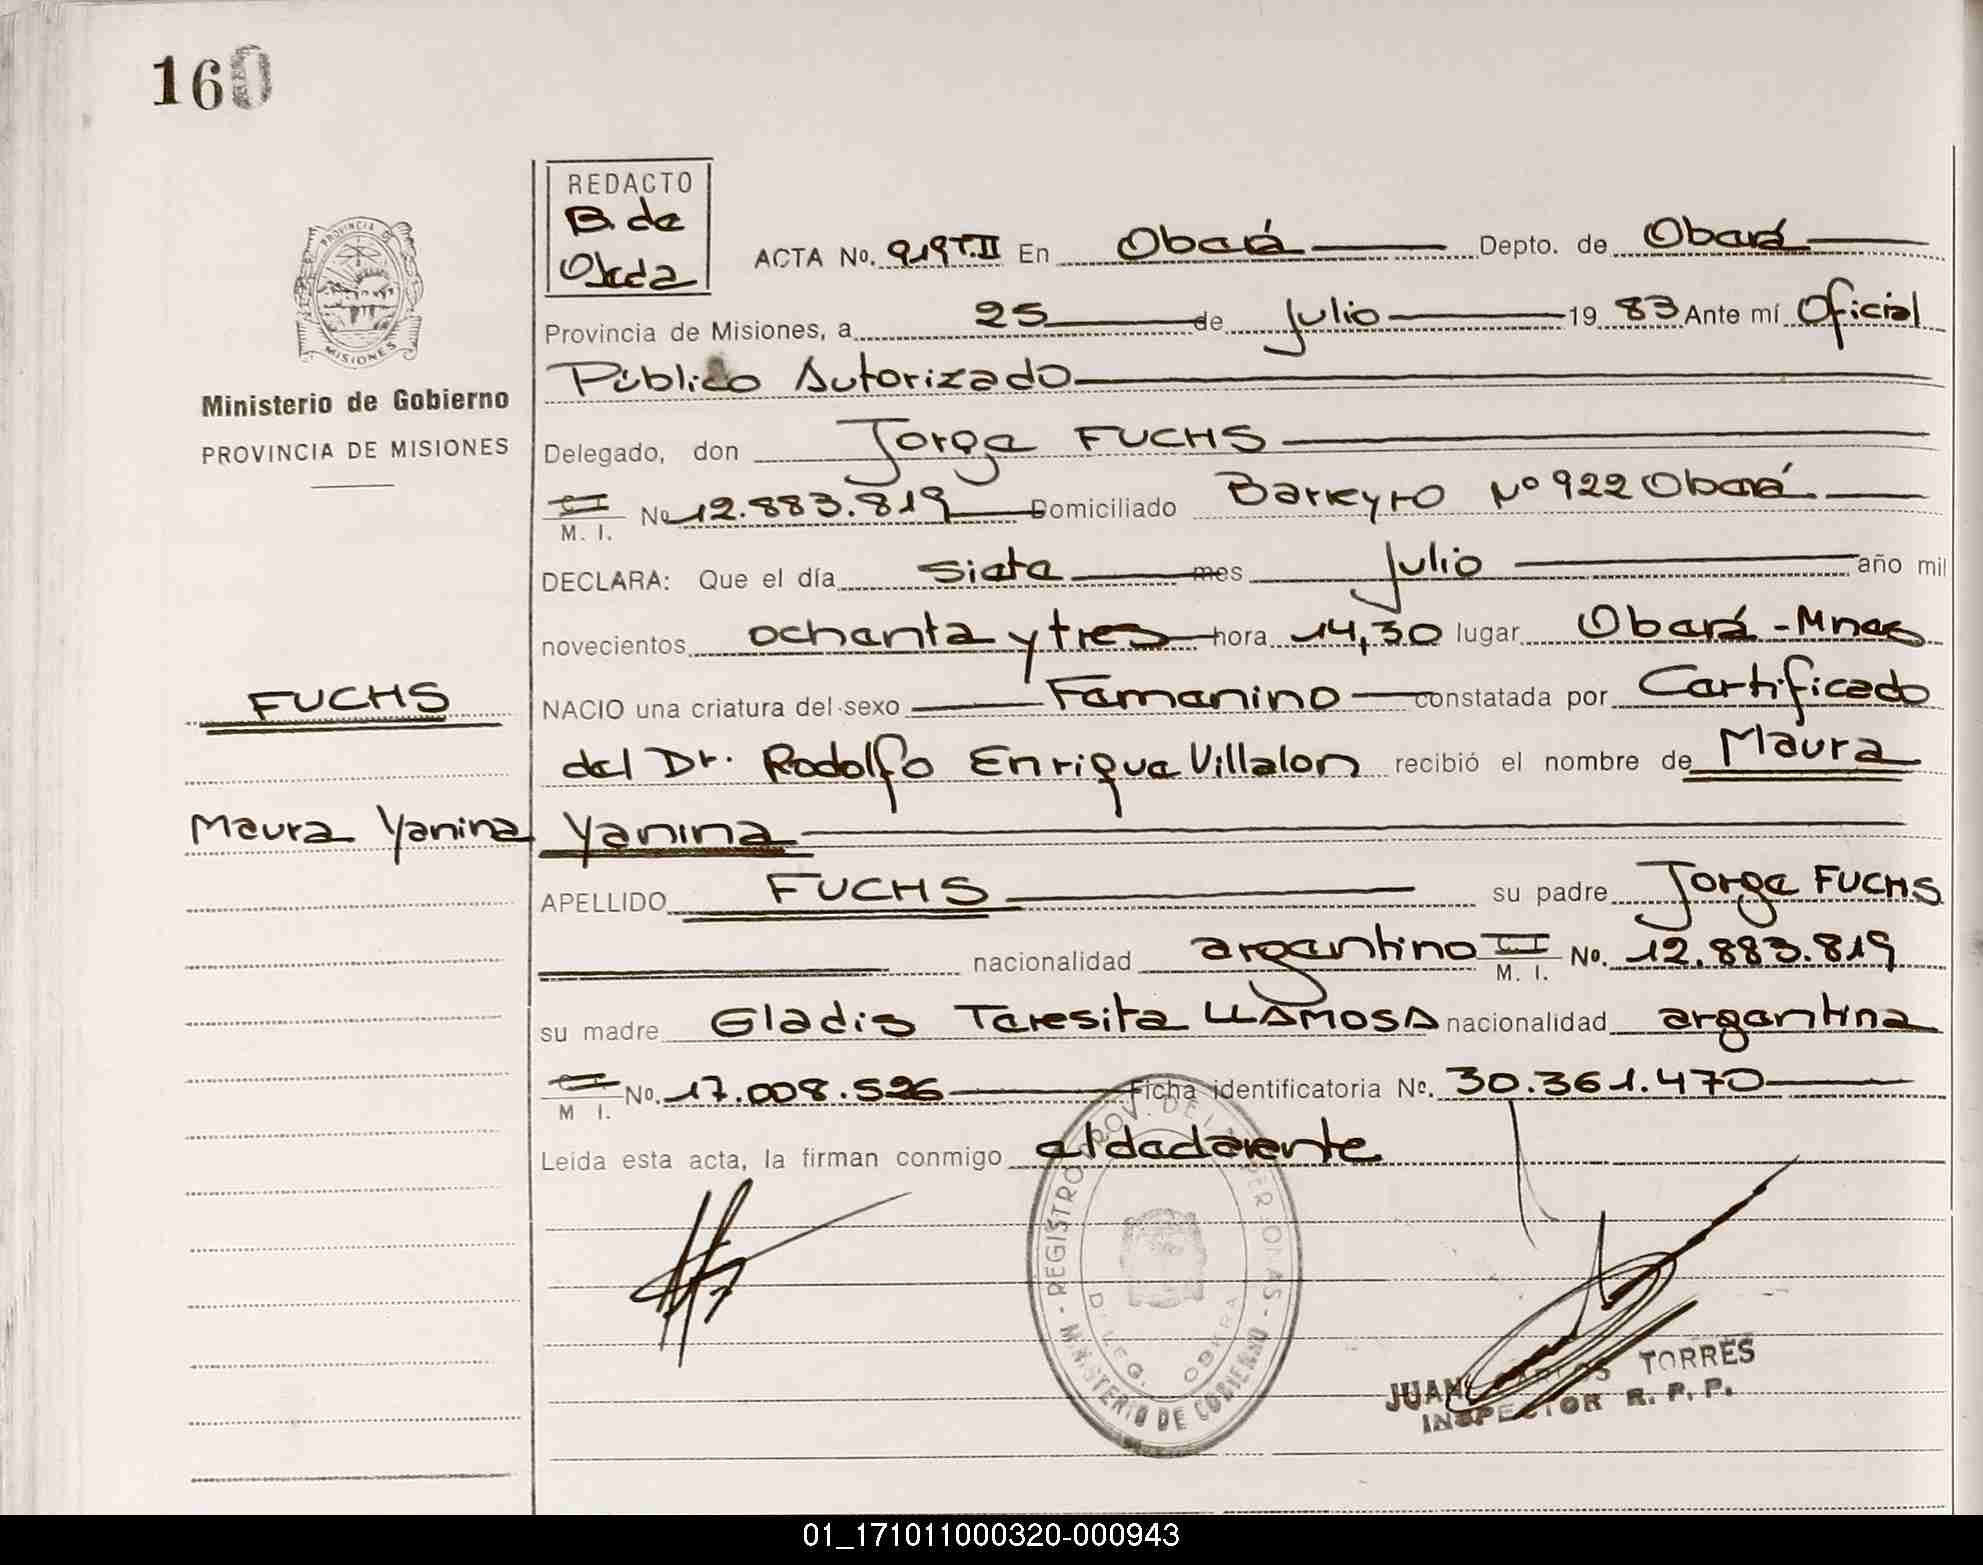 160
REDACTO
B. de
Ojeda
PROVINCIA DE
MISIONES
Ministerio de Gobierno
PROVINCIA DE MISIONES
ACTA No. 919 T.II En Oberá Depto. de Oberá
Provincia de Misiones, a 25 de Julio 19 83 Ante mí Oficial
Público Autorizado
Delegado, don Jorge FUCHS
C I M. I. No 12.883.819 Domiciliado Barreyro Nº 922 Oberá
DECLARA: Que el día siete mes Julio año mil
novecientos ochenta y tres hora 14,30 lugar Oberá - Mnes
FUCHS
NACIO una criatura del sexo Femenino constatada por Certificado
del Dr. Rodolfo Enrique Villalon recibió el nombre de Maura
Maura Yanina
Yanina
APELLIDO FUCHS su padre Jorge FUCHS
nacionalidad argentino C I M. I. No. 12.883.819
su madre Gladis Teresita LLAMOSA nacionalidad argentina
C I M I. No. 17.008.526 Ficha identificatoria No. 30.361.470
Leída esta acta, la firman conmigo el declarante
REGISTRO PROV. DE LAS PERSONAS - MINISTERIO DE GOBIERNO -
DELEG. OBERA
JUAN CARLOS TORRES
INSPECTOR R. P. P.
01_171011000320-000943